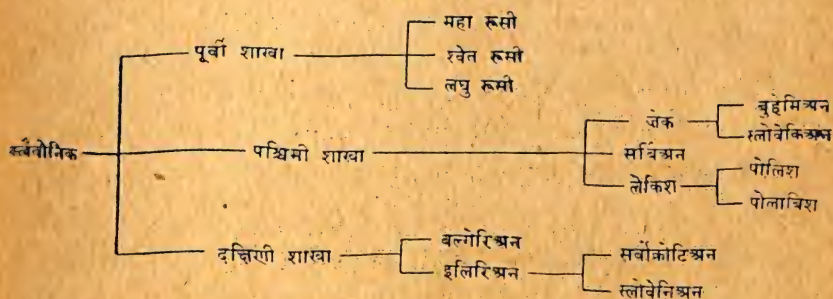 स्लैवोनिक
पूर्वी शाखा
महा रूसी
श्वेत रूसी
लघु रूसी
पश्चिमी शाखा
ज़ेक
बुहेमिअन
स्लोवेकिअन
सर्विअन
लेकिश
पोलिश
पोलाबिश
दक्षिणी शाखा
बल्गेरिअन
इलिरिअन
सर्वोक्रोटिअन
स्लोवेनिअन